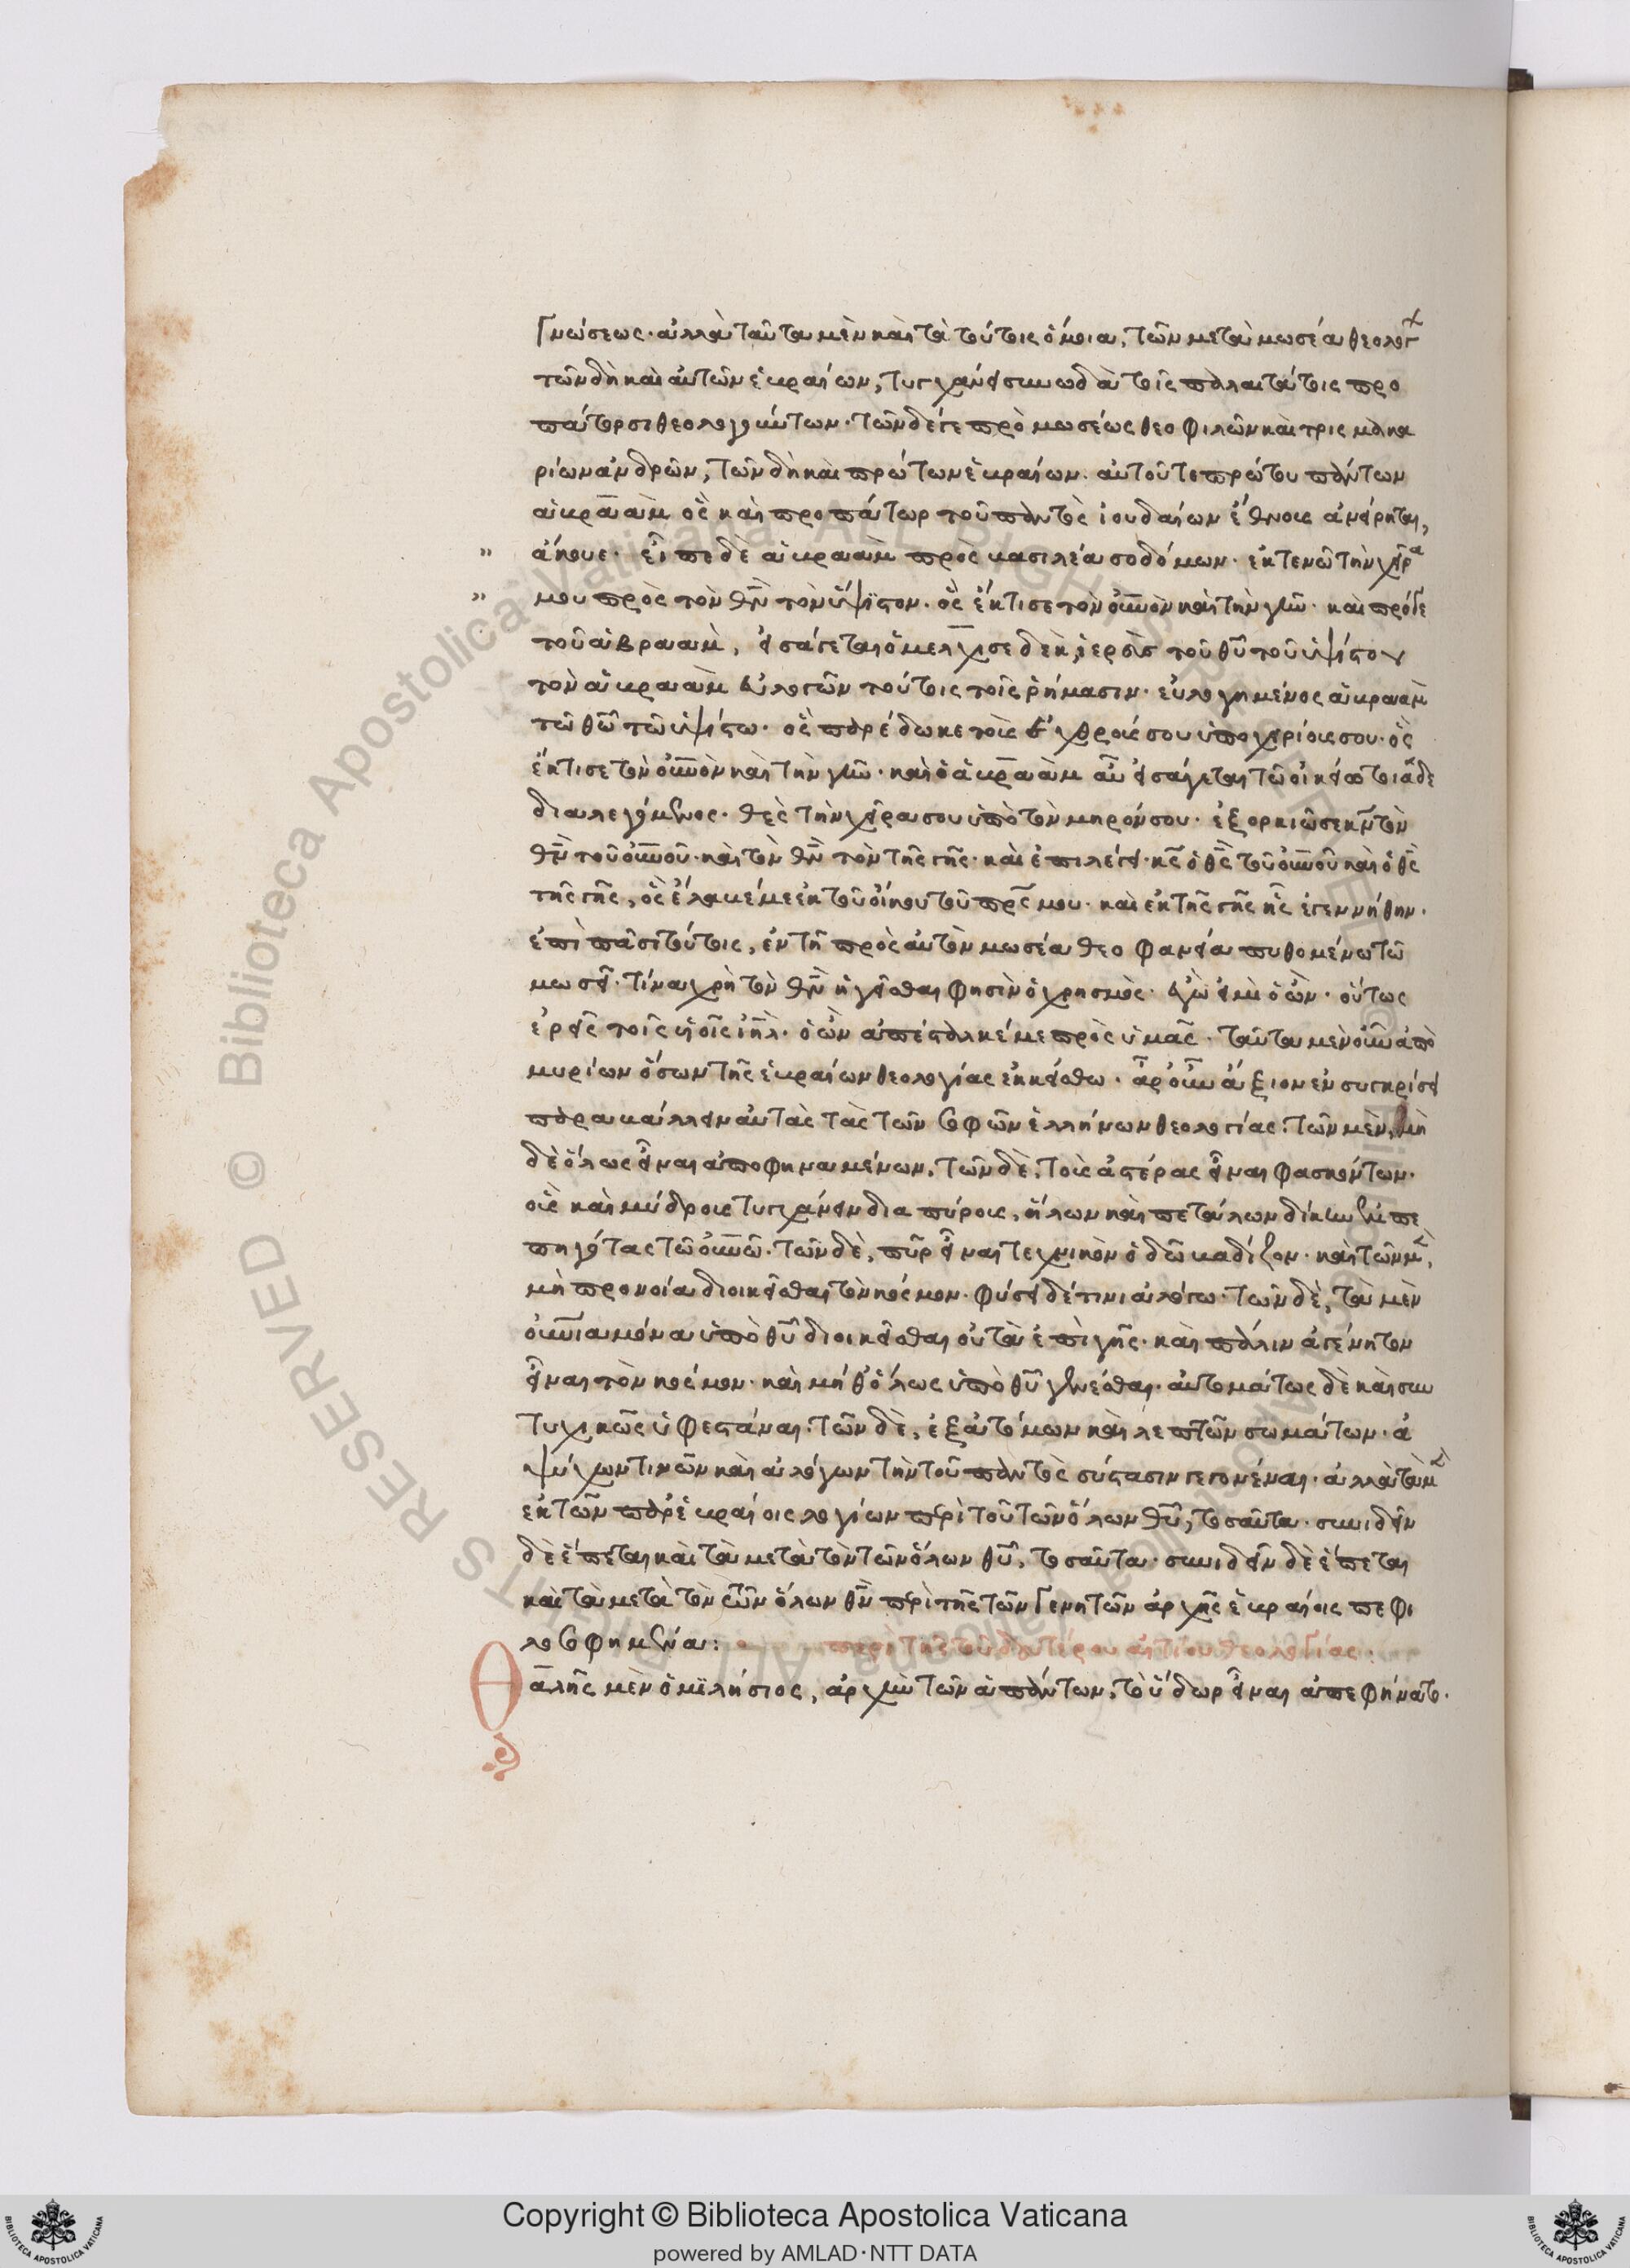 γνώσεως· ἀλλὰ ταῦτα μὲν καὶ τὰ τούτοις ὅμοια, τῶν μετὰ μωσέα θεολόγ
τῶν δὴ καὶ αὐτῶν ἑβραίων, τυγχάνει συνωδὰ τοῖς παλαιτάτοις προ
πάτορσι θεολογούντων· τῶν δέ γε πρὸ μωσέως θεοφιλῶν καὶ τρις μακα
ρίων ἀνδρῶν, τῶν δὴ καὶ πρώτων ἑβραίων. αὐτοῦ τε πρώτου πάντων
ἀβραὰμ ὃς καὶ προπάτωρ τοῦ παντὸς ἰουδαίων ἔθνους ἀνείρηται,
" ἄκουε· εἶπε δὲ ἀβραὰμ πρὸς βασιλέα σοδόμων· ἐκτενῶ τὴν χεῖρα
" μου πρὸς τὸν θν τὸν ὕψιστον· ὃς ἔκτισε τὸν οὐνον καὶ τὴν γῆν· καὶ πρό γε
τοῦ ἀβραὰμ, εἰσάγεται ὁ μελχισεδὲκ, ἱερεὺς τοῦ θυ τοῦ ὑψίστου
τὸν ἀβραὰμ εὐλογῶν τούτοις τοῖς ῥήμασιν· εὐλογημένος ἀβραὰμ
τῶ θω τῶ ὑψίστω· ὃς παρέδωκε τοὺς ἐχθρούς σου ὑποχειρίους σου· ὃς
ἔκτισε τὸν οὐνον καὶ τὴν γῆν· καὶ ὁ ἀβραὰμ αὖ εἰσάγεται τῶ οἰκείω τοιάδε
διαλεγόμενος· θὲς τὴν χεῖρα σου ὑπὸ τὸν μηρόν σου· ἐξορκιῶ σε κν τὸν
θν τοῦ οὐνου· καὶ τὸν θν τὸν τῆς γῆς· καὶ ἐπιλέγει· κς ὁ θς τοῦ οὐνου καὶ ὁ θς
τῆς γῆς, ὃς ἔλαβέ με ἐκ τοῦ οἴκου τοῦ πρς μου· καὶ ἐκ τῆς γῆς ἧς ἐγεννήθην·
ἐπὶ πᾶσι τούτοις, ἐν τῆ πρὸς αὐτὸν μωσέα θεοφανεία πυθομένω τῶ
μωσεῖ· τίνα χρὴ τὸν θν ἡγεῖσθαι φησὶν ὁ χρησμός· ἐγώ εἰμι ὁ ὤν· οὕτως
ἐρεῖς τοῖς υἱοῖς ιηλ· ὁ ὢν ἀπέσταλκέ με πρὸς ὑμᾶς· ταῦτα μὲν οὖν ἀπὸ
μυρίων ὅσων τῆς ἑβραίων θεολογίας ἐκκείσθω· ἆρ οὖν ἄξιον ἐν συγκρίσει
παραβάλλειν αὐτὰς τὰς τῶν σοφῶν ἑλλήνων θεολογίας· τῶν μὲν, μὴ
δὲ ὅλως εἶναι ἀποφηναμένων, τῶν δὲ, τοὺς ἀστέρας εἶναι φασκόντων·
οὓς καὶ μύδρους τυγχάνειν διαπύρους, ἥλων καὶ πετάλων δίκην ἐμπε
πηγότας τῶ οὐνω· τῶν δὲ, πῦρ εἶναι τεχνικὸν ὁδῶ βαδίζον· καὶ τῶν μ,
μὴ προνοία διοικεῖσθαι τὸν κόσμον· φύσει δέ τινι ἀλόγω· τῶν δὲ, τὰ μὲν
οὐνια μόνα ὑπὸ θυ διοικεῖσθαι οὐ τὰ ἐπὶ γῆς· καὶ πάλιν ἀγένητον
εἶναι τὸν κόσμον· καὶ μήθ' ὅλως ὑπὸ θυ γενέσθαι· αὐτομάτως δὲ καὶ συν
τυχικῶς ὑφεστάναι· τῶν δὲ, ἐξ ἀτόμων καὶ λεπτῶν σωμάτων· ἀ
ψύχων τινῶν καὶ ἀλόγων τὴν τοῦ παντὸς σύστασιν γεγονέναι· ἀλλὰ τὰ μ
ἐκ τῶν παρ' ἑβραίοις λογίων περὶ τοῦ τῶν ὅλων θυ, τοσαῦτα· συνιδεῖν
δὲ ἕπεται καὶ τὰ μετὰ τὸν τῶν ὅλων θυ, τοσαῦτα· συνιδεῖν δὲ ἕπεται
καὶ τὰ μετὰ τὸν τῶν ὅλων θν περὶ τῆς τῶν γενητῶν ἀρχῆς ἑβραίοις πεφι
λοσοφημένα: περὶ τῆς τοῦ δευτέρου αἰτίου θεολογίας:
Θαλῆς μὲν ὁ μιλήσιος, ἀρχὴν τῶν ἁπάντων, τὸ ὕδωρ εἶναι ἀπεφήνατο·
Copyright © Biblioteca Apostolica Vaticana
powered by AMLAD·NTT DATA